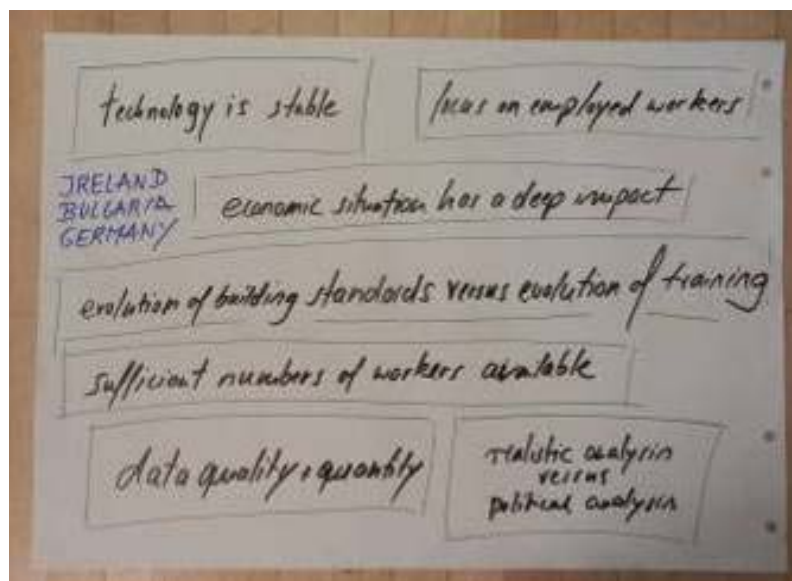 technology is stable
focus on employed workers
IRELAND
BULGARIA
GERMANY
economic situation has a deep impact
evolution of building standards versus evolution of training
sufficient numbers of workers available
data quality + quantity
realistic analysis
versus
political analysis